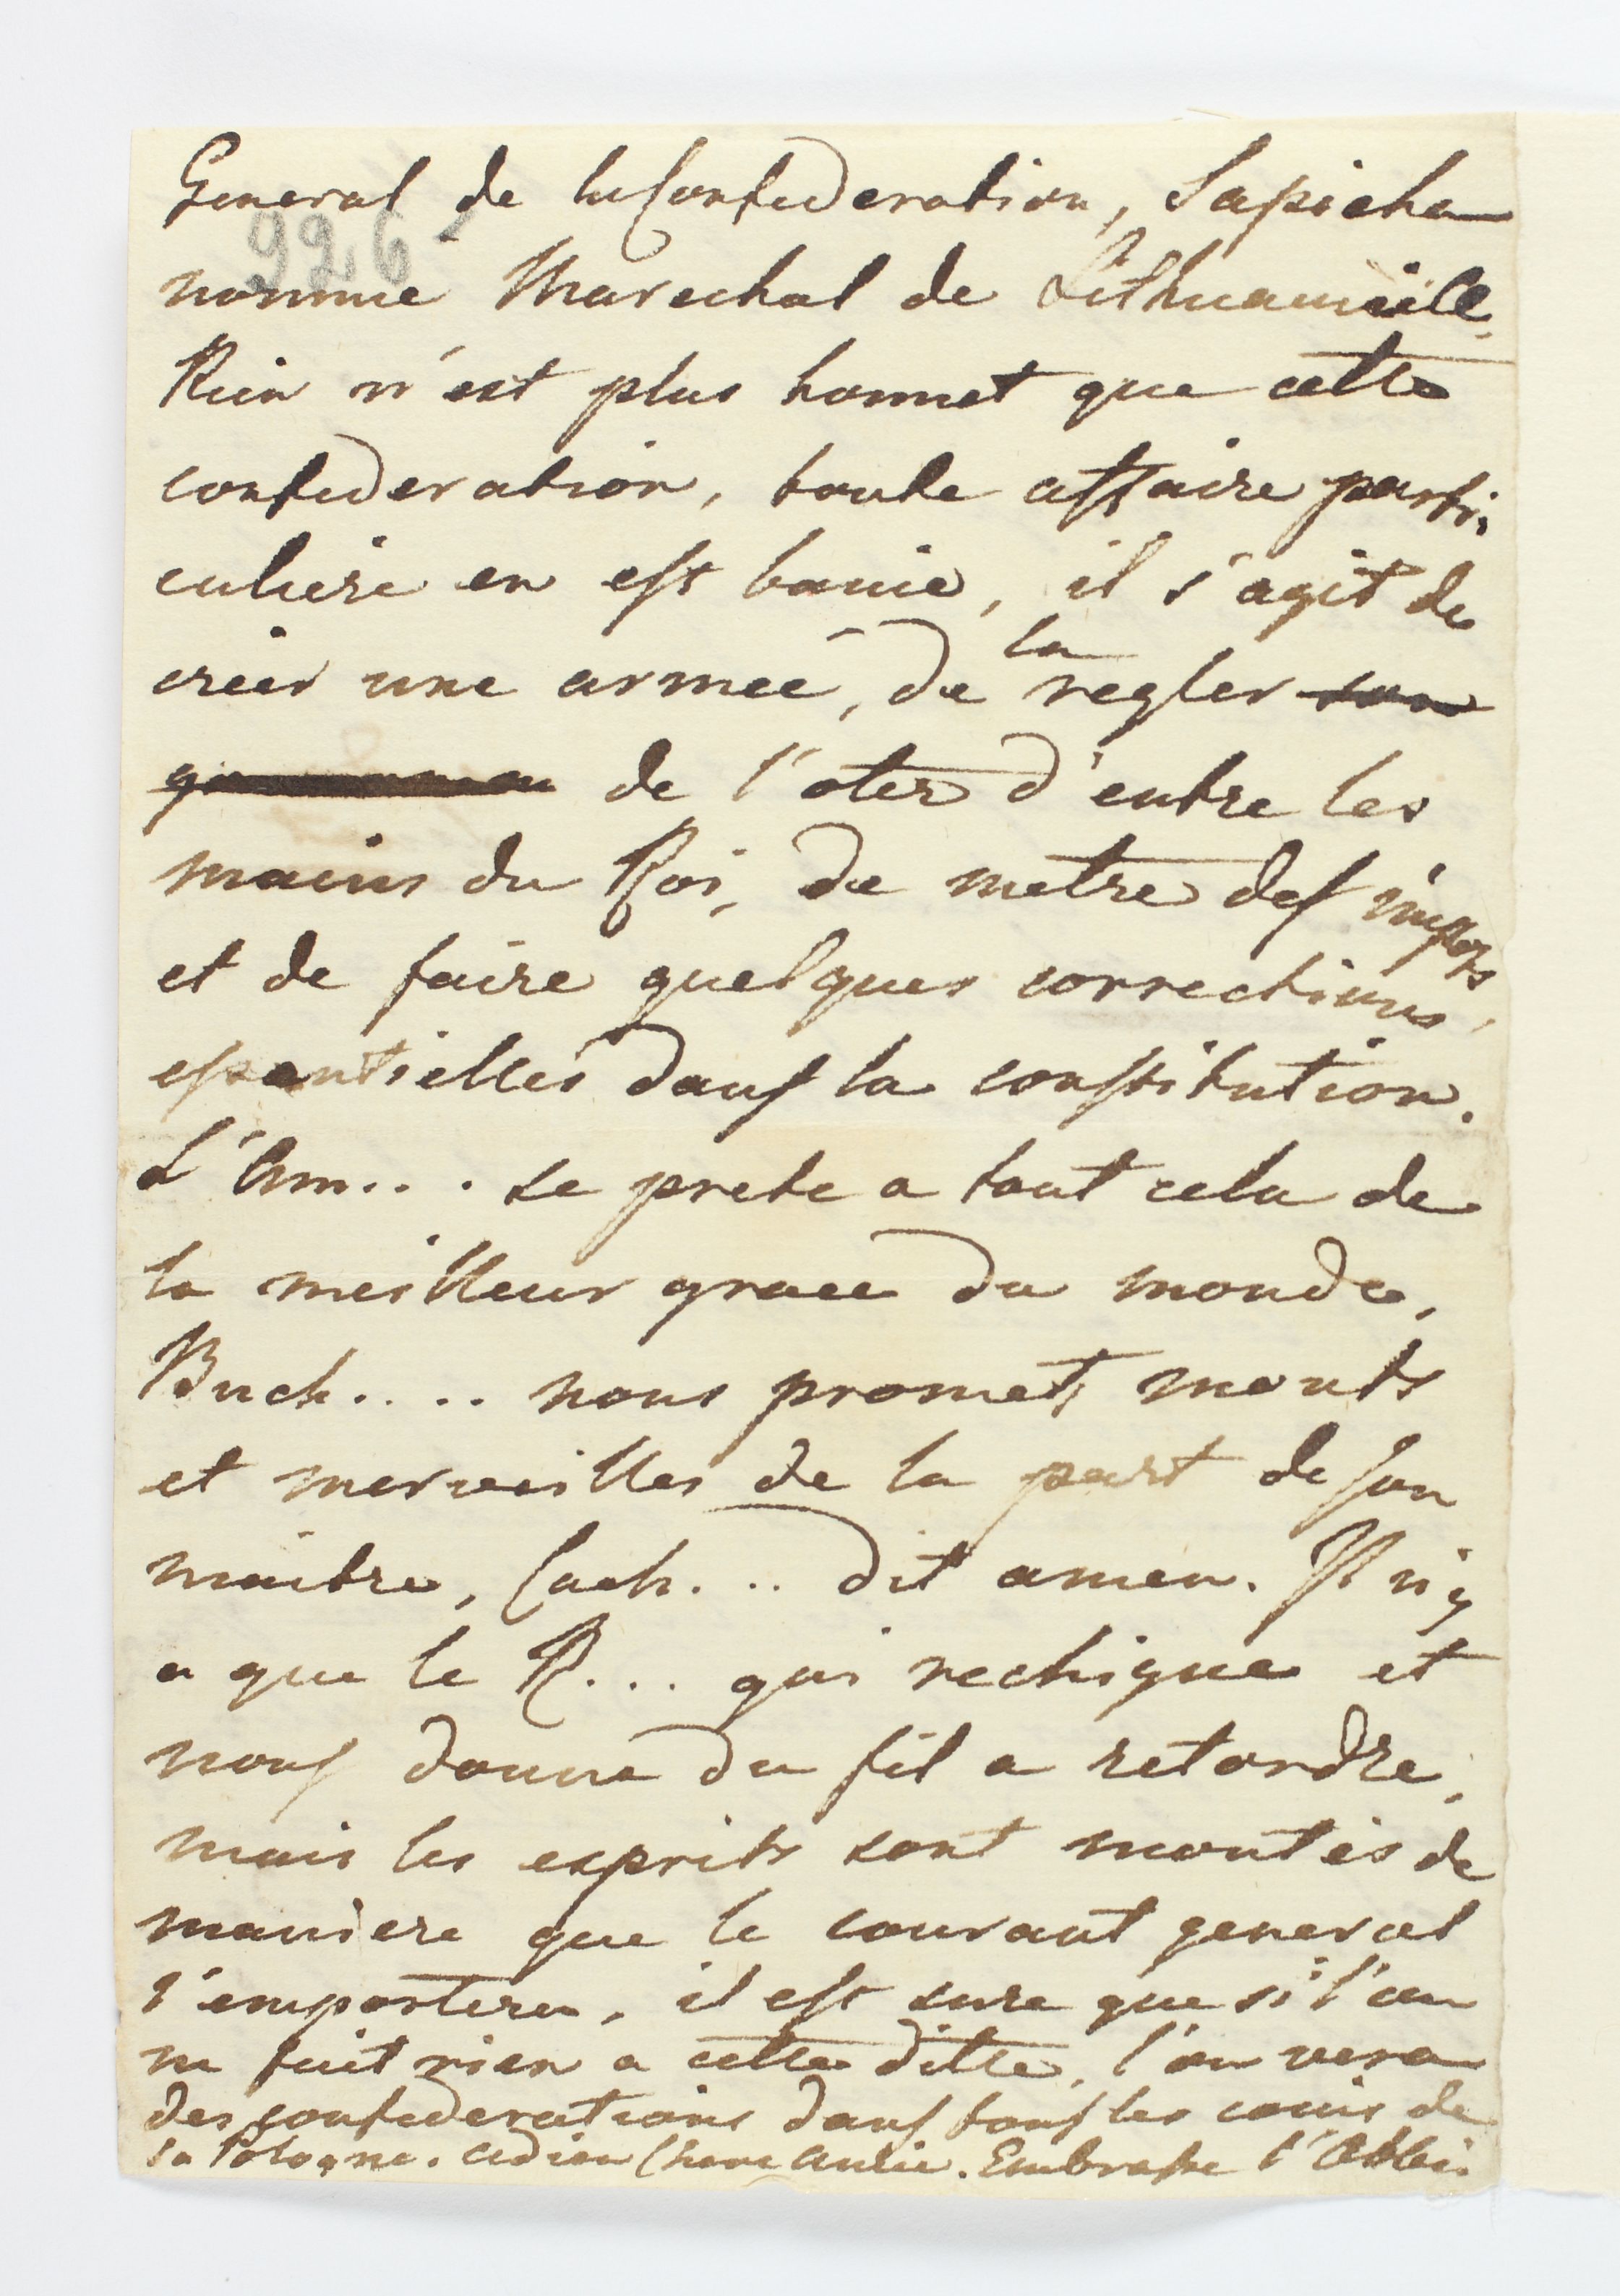 General de la Confederation, Sapieha
926
nommé Marechal de Lithuanie
Rien n'est plus honnet que cette
confederation, toute affaire parti-
culiere en est banie, il s'agit de
créer une armeé, de la regler son
de l'oter d'entre les
mains du Roi, de metre des impots
et de faire quelques corrections,
essentielles dans la constitution.
L'Am... se prete a tout cela de
la meilleur grace du monde,
Buch.... nous promets monts
et merveilles de la part de son
maitre, Cach... dit amen. Il n'y
a que le R... qui rechigne et
nous donne du fil a retordre,
mais les esprits sont montés de
maniere que le courant general
l'emportera, il est sure que si l'on
ne fait rien a cette diette, l'on vera
des confederations dans tous les coins de
la Pologne. Adieu Chere Amie. Embrasse l'Abbé.